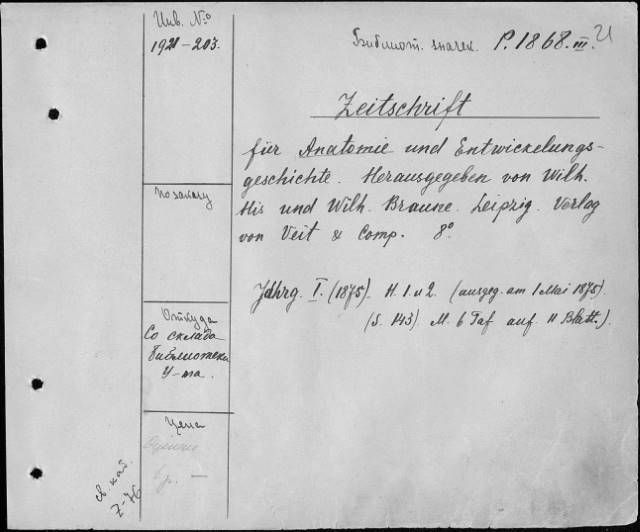 Инв. №
1921-203.
Библиот. значек. P. 1868. III.
Zeitschrift
für Anatomie und Entwickelungs-
geschichte. Herausgegeben von Wilh.
His und Wilh. Braune. Leipzig. Verlag
von Veit & Comp. 8°
По заказу
Jahrg. I. (1875). H. 1 u 2. (ausgeg. am 1 Mai 1875).
(S. 143) M. 6 Taf auf 11 Blatt.).
Откуда
Со склада
библиотеки
У-та.
Цена